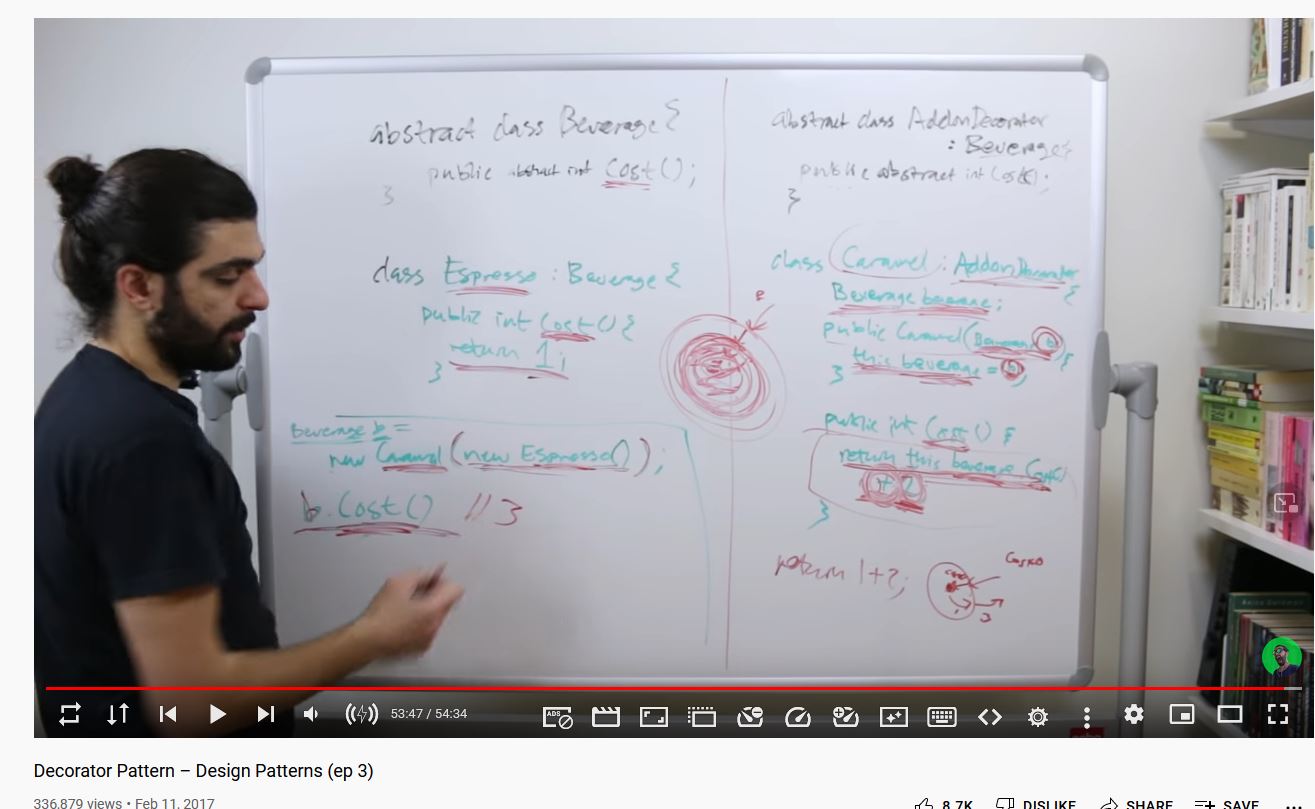 abstract class Beverage {
public abstract int Cost();
}
class Espresso : Beverage {
public int Cost() {
return 1;
}
Beverage b =
new Caramel (new Espresso());
b.Cost() // 3
abstract class AddonDecorator
: Beverage {
public abstract int Cost();
}
class Caramel : AddonDecorator
{
Beverage beverage;
public Caramel (Beverage b) {
this beverage = b;
}
public int Cost() {
return this beverage Cost()
+ 2
}
e
return 1+2;
3
53:47 / 54:34
ADS
Decorator Pattern – Design Patterns (ep 3)
336,879 views • Feb 11, 2017
8.7K
DISLIKE
SHARE
SAVE